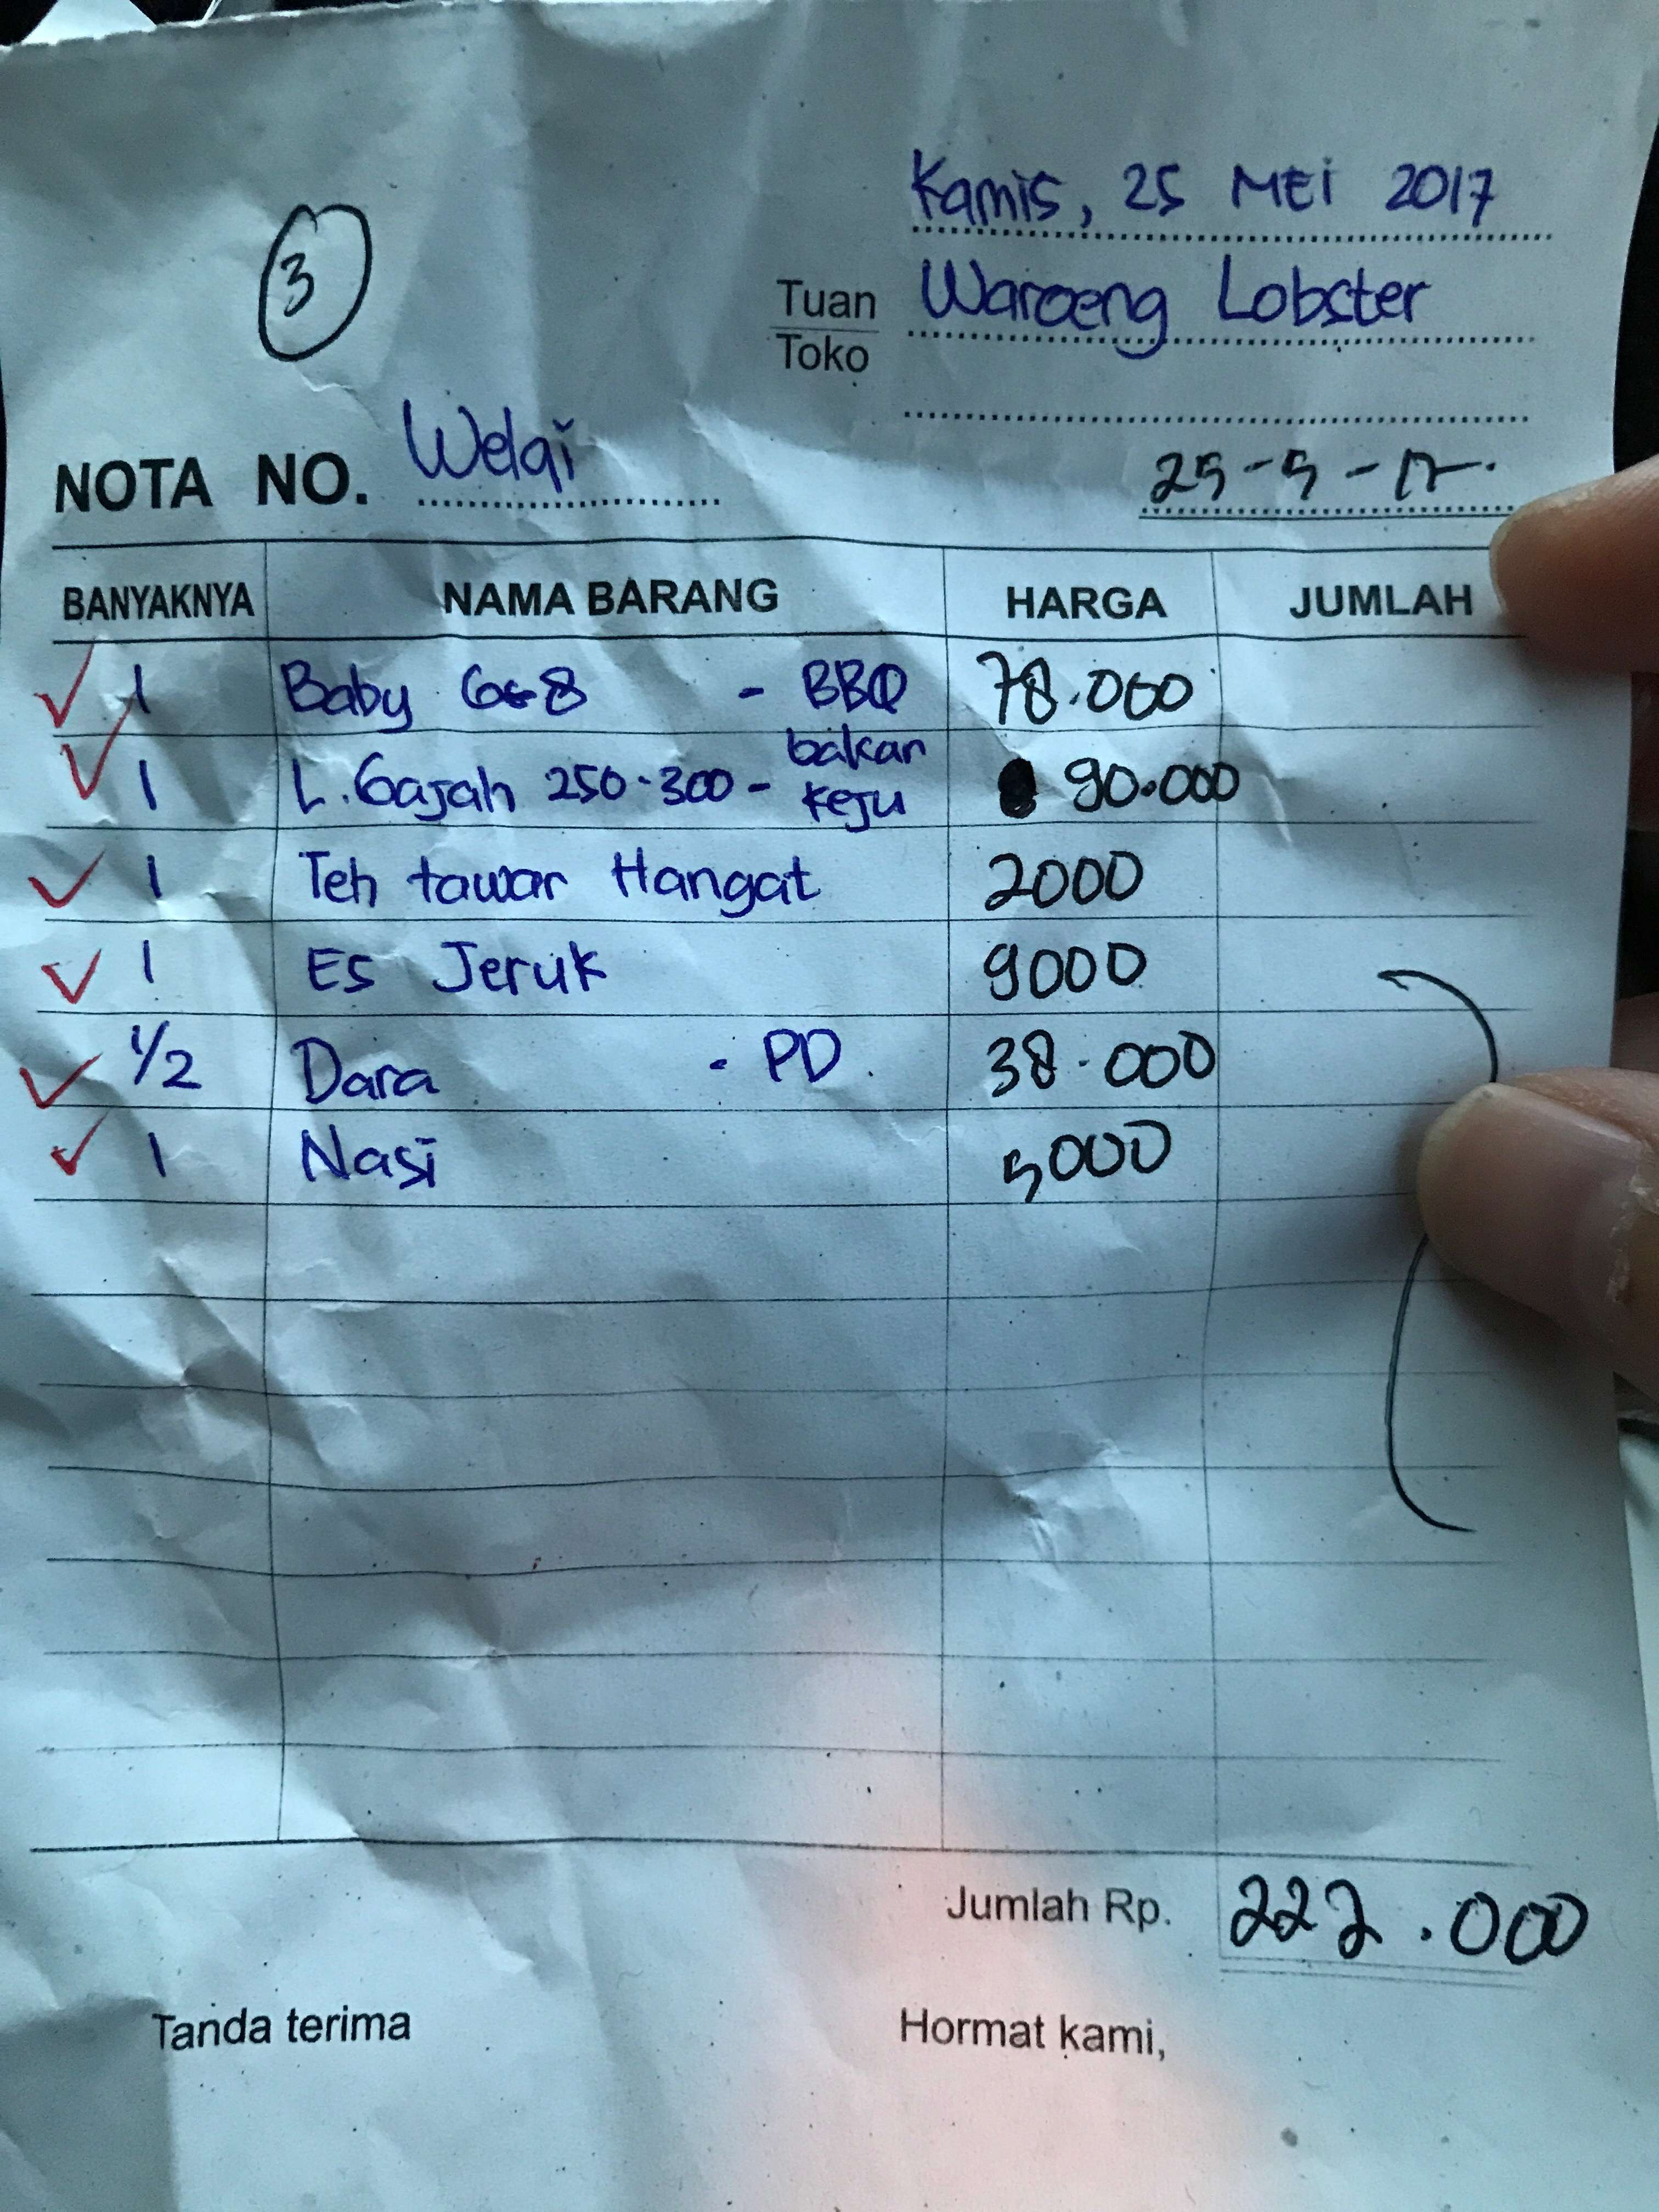 Kamis, 25 MEi 2017
3
Tuan Waroeng Lobster
Toko
NOTA NO. Welqi
25-5-17.
BANYAKNYA NAMA BARANG HARGA JUMLAH
1 Baby 6-8 - BBQ 78.000
1 L. Gajah 250-300 - bakar keju 90.000
1 Teh tawar Hangat 2000
1 Es Jeruk 9000
1/2 Dara - PD. 38.000
1 Nasi 5000
Jumlah Rp. 222.000
Tanda terima Hormat kami,